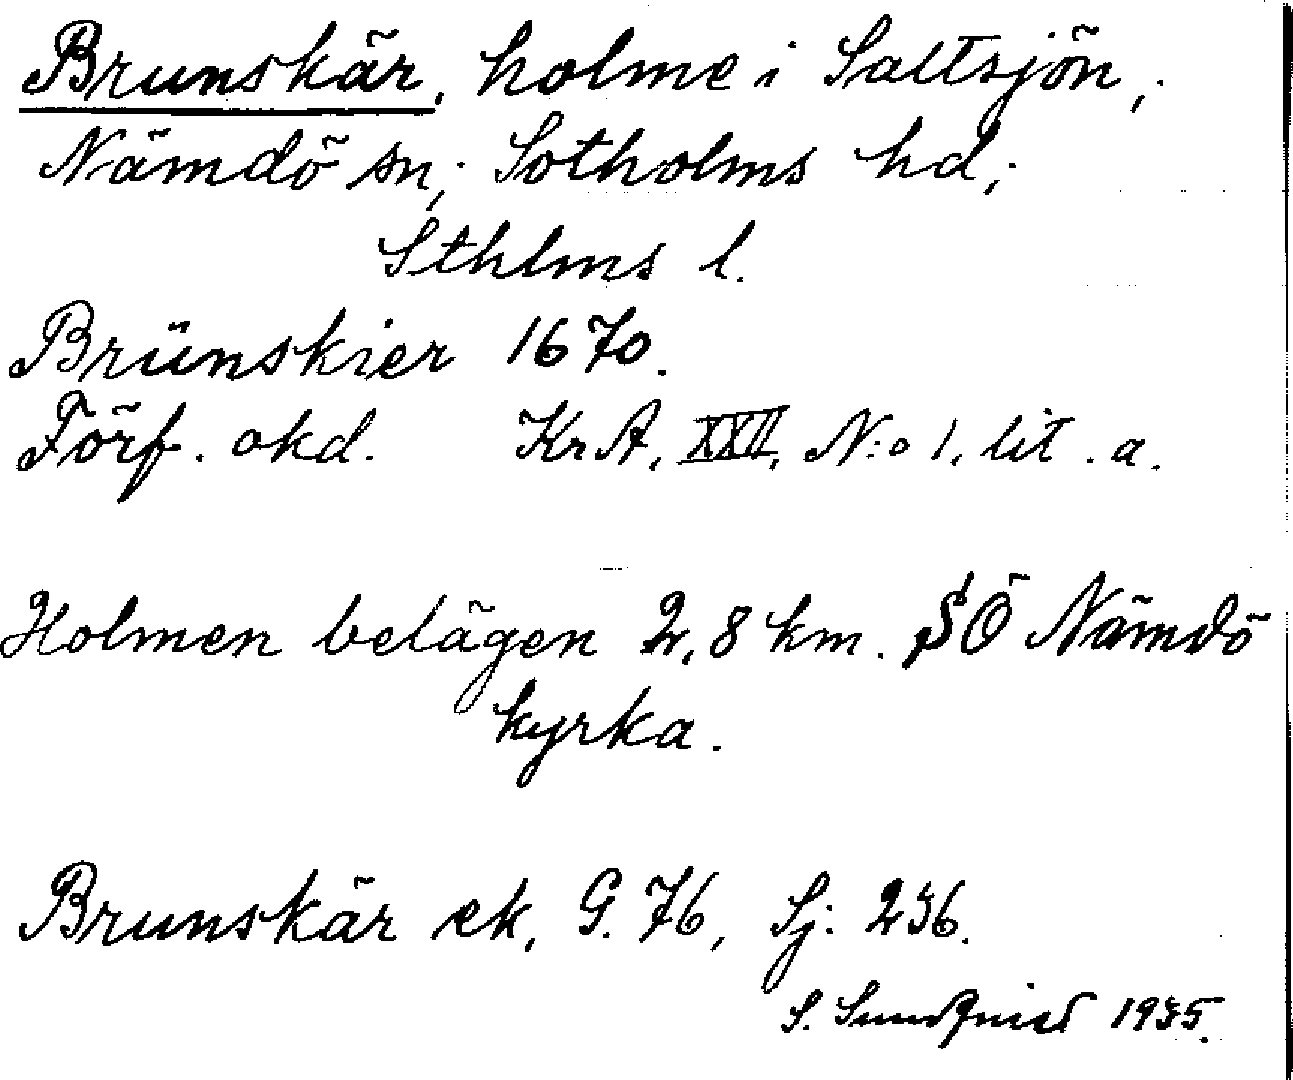 Brunskär, holme i Saltsjön,
Nämdö sn; Sotholms hd;
Sthlms l.
Brünskier 1670.
Förf. okd. KrA, XXII, N:o 1, lit. a.
Holmen belägen 2,8 km. SÖ Nämdö
kyrka.
Brunskär ek, G. 76, Sj: 236.
S. Sundqvist 1935.